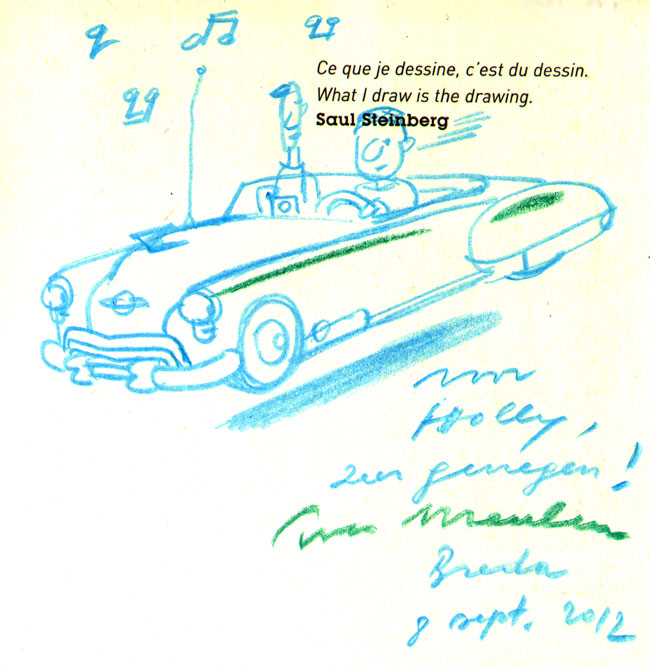 Ce que je dessine, c'est du dessin.
What I draw is the drawing.
Saul Steinberg
voor
Holly,
zeer genegen!
Ever Meulen
Breda
8 sept. 2012